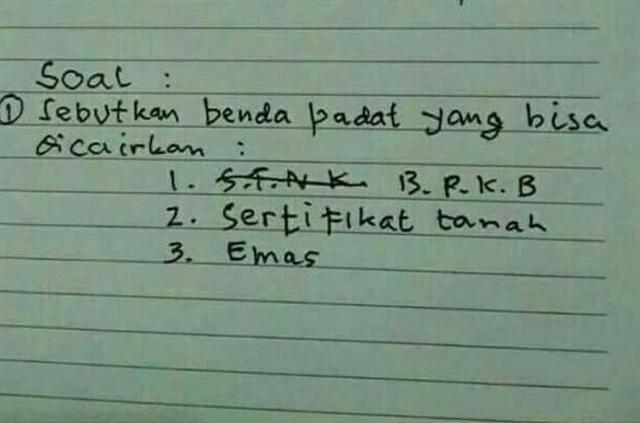 Soal :
① Sebutkan benda padat yang bisa
dicairkan :
1. S.T.N.K. B.P.K.B
2. Sertifikat tanah
3. Emas